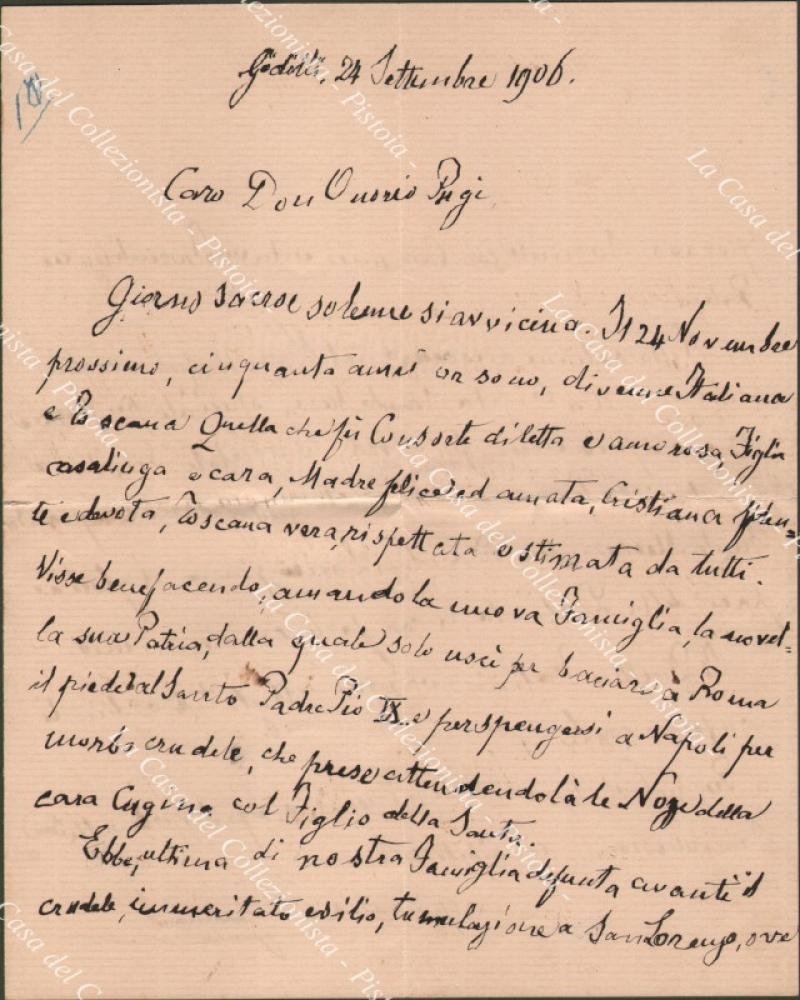 Gödöllö, 24 Settembre 1906.
Caro Don Onorio Pugi
Giorno sacro e solenne si avvicina. Il 24 Novembre
prossimo, cinquanta anni or sono, divenne Italiana
e Toscana Quella che fù Consorte diletta e amorosa, Figlia
casalinga e cara, Madre felice ed amata, Cristiana
te e devota, Toscana vera, rispettata e stimata da tutti.
Visse bene facendo, amando la nuova Famiglia, la novel=
la sua Patria, dalla quale solo uscì per baciare à Roma
il piede al Santo Padre Pio IX e per spengersi a Napoli per
morbo crudele, che prese attendendo là le Nozze della
cara Cugina col Figlio della Santa.
Ebbe, ultima di nostra Famiglia defunta avanti il
crudele, immeritato esilio, tumulazione a San Lorenzo, ove
La Casa del Collezionista - Pistoia -